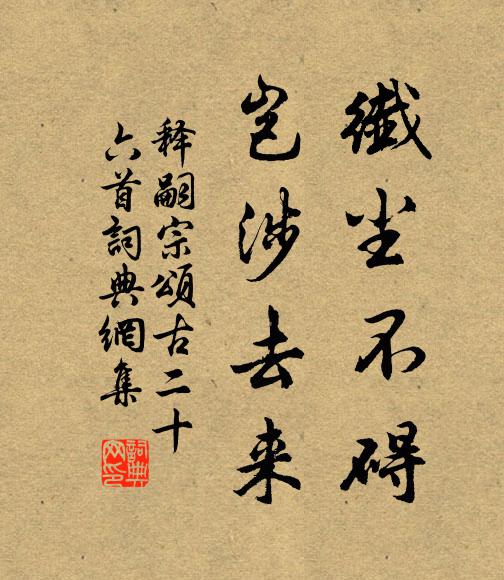 纖尘不碍
岂涉去来
释嗣宗頌古二十
六首詞典網集
詞典
网印